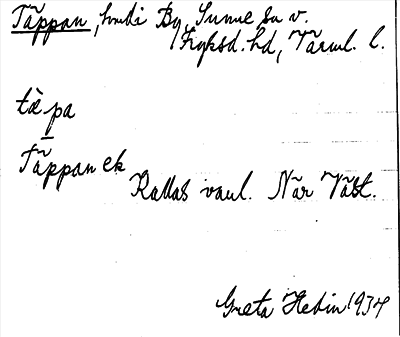 Täppan, hmdi By, Sunne sn v.
Fryksd. hd, Värml. l.
tὲpa
Täppan ek
Kallas vanl. När Väst.
Greta Hedin 1934